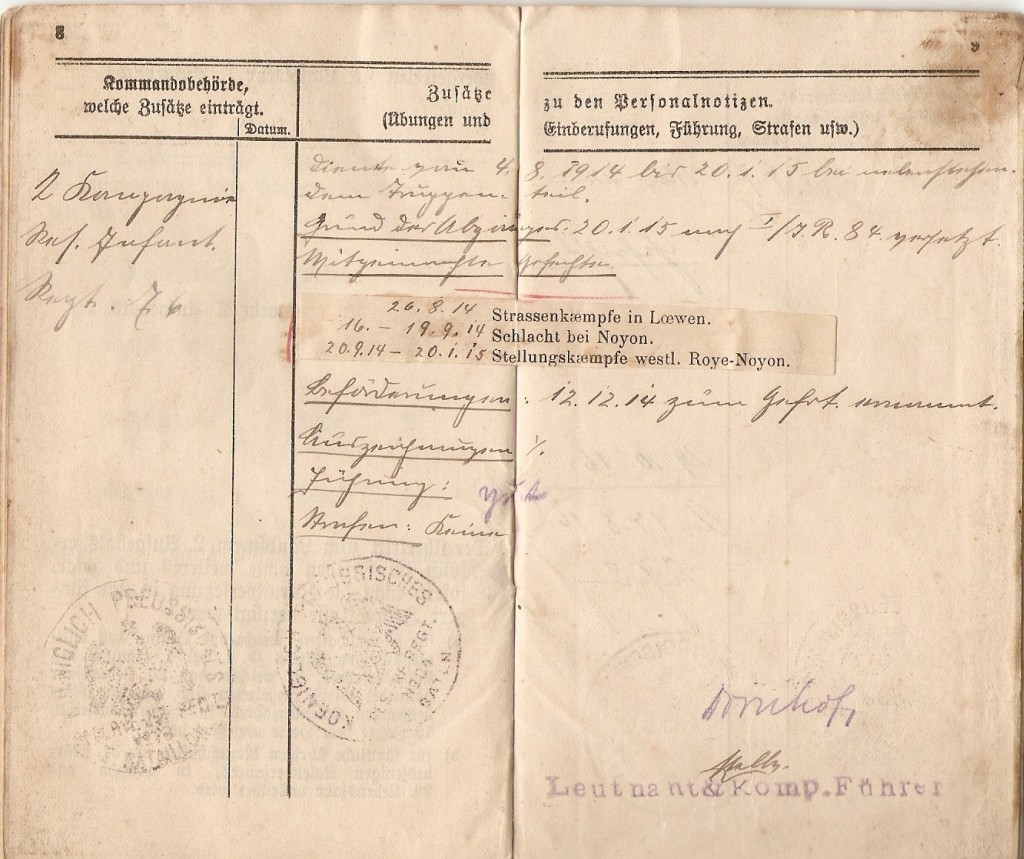 8
9
Kommandobehörde,
welche Zusätze einträgt.
Datum.
Zusätze zu den Personalnotizen.
(Übungen und Einberufungen, Führung, Strafen usw.)
2 Kompagnie
Res. Infant.
Regt. 76
diente vom 4. 8. 1914 bis 20. 1. 15 bei nebenstehen-
dem Truppen-teil.
Grund des Abganges: 20.1.15 nach I/J.R. 84 versetzt.
Mitgemachte Gefechte
26.8.14 Strassenkæmpfe in Lœwen.
16. – 19.9.14 Schlacht bei Noyon.
20.9.14 – 20.1.15 Stellungskæmpfe westl. Roye-Noyon.
Beförderungen: 12.12.14 zum Gefrt. ernannt.
Auszeichnungen ./.
Führung: gut
Strafen: Keine
KOENIGLICH PREUSSISCHES
RES. INF. REGT.
Leutnant & Komp. Führer